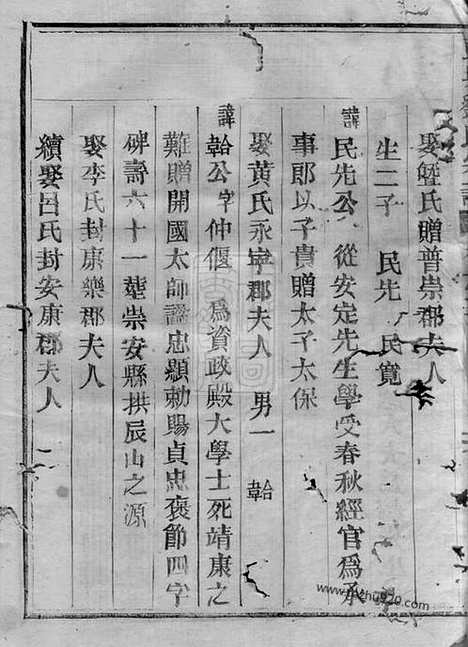 娶暨氏贈普崇郡夫人
生二子　民先　民寬
諱民先公　從安定先生學受春秋經官爲承
事郎以子貴贈太子太保
娶黃氏永寧郡夫人　男一　韐
諱韐公字仲偃　爲資政殿大學士死靖康之
難贈開國太師謚忠顯勅賜貞忠褒節四字
碑壽六十一塟崇安縣拱辰山之源
娶李氏封康樂郡夫人
續娶呂氏封安康郡夫人
www.zhuchu920.com